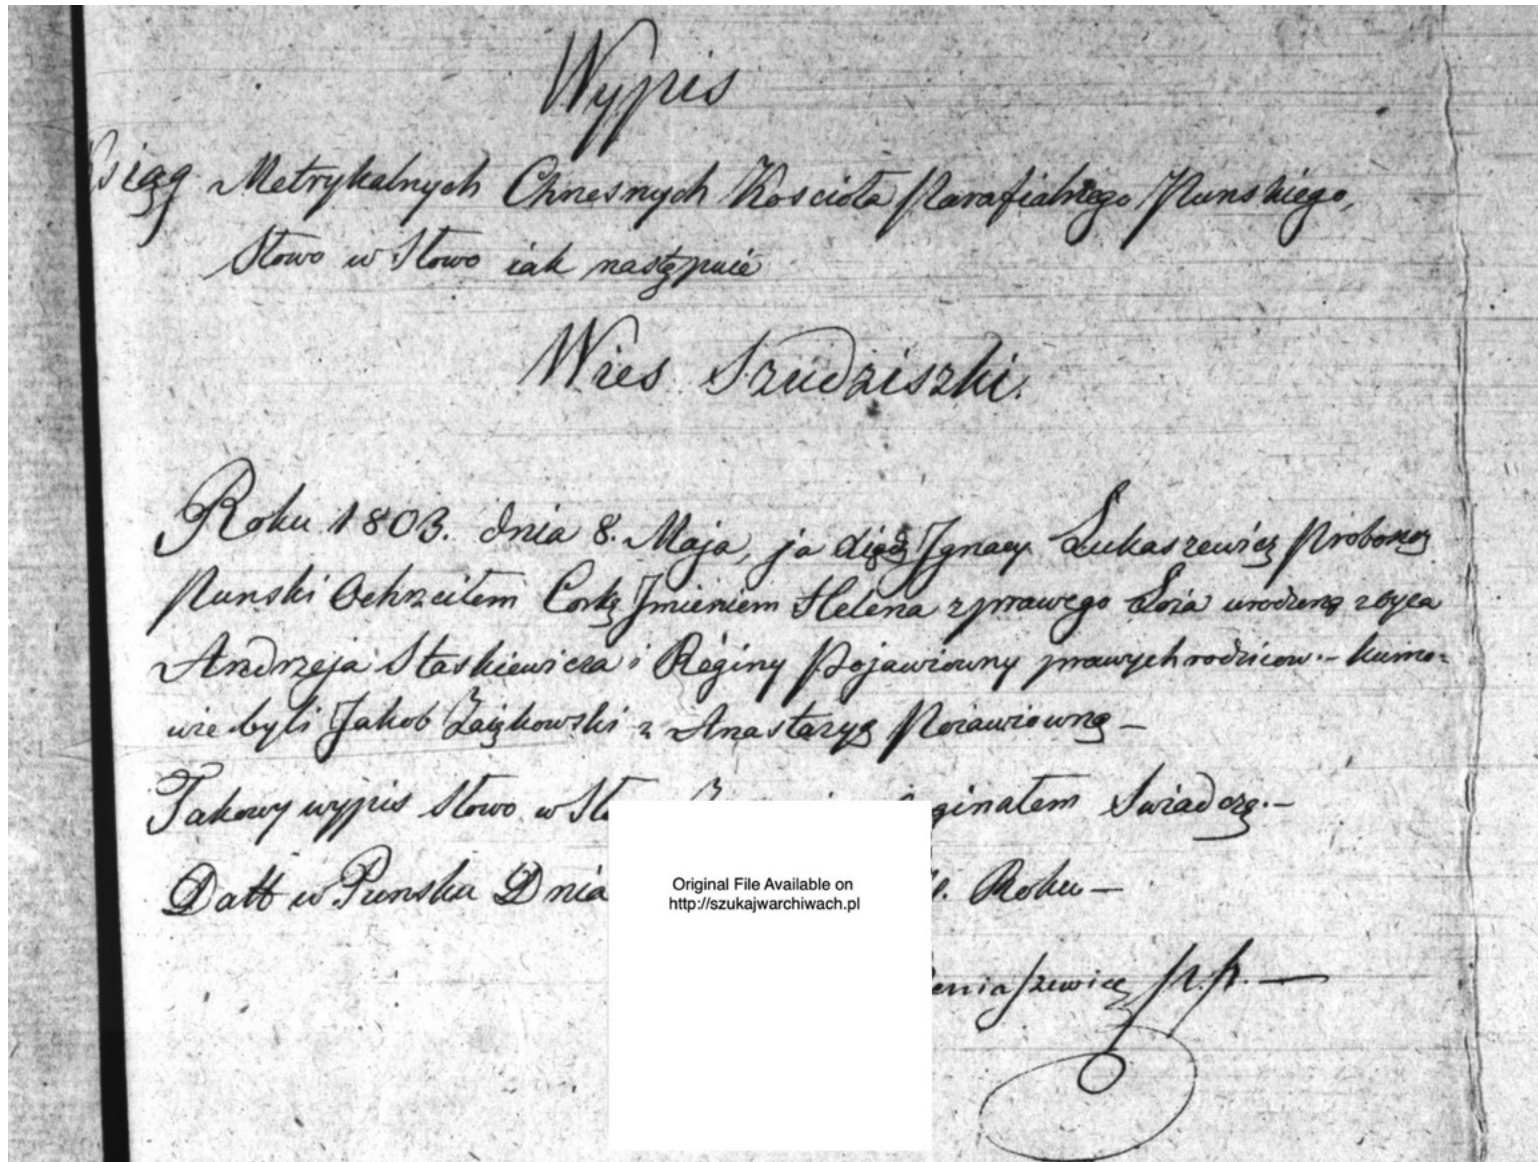 Wypis
Ksiąg Metrykalnych Chrzesnych Koscioła Parafialnego Punskiego,
Słowo w Słowo iak następuie
Wies Szudziszki.
Roku 1803. dnia 8. Maja, ja Xiądz Jgnacy Łukaszewicz Proboszcz
Punski Ochrzciłem Corkę Jmieniem Helena z prawego Łoża urodzoną z oyca
Andrzeja Staskiewicza i Reginy Pojawiowny prawych rodzicow. – kumo-
wie byli Jakob Zaiąkowski z Anastazyą Poiawiowną –
Takowy wypis Słowo w Sło ginałem Swiadczę. –
Datt w Punsku Dnia Roku –
eniaszewicz P. P. –
Original File Available on
http://szukajwarchiwach.pl